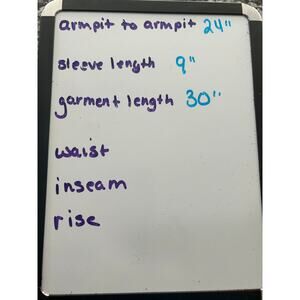 armpit to armpit 24"
sleeve length 9"
garment length 30"
waist
inseam
rise